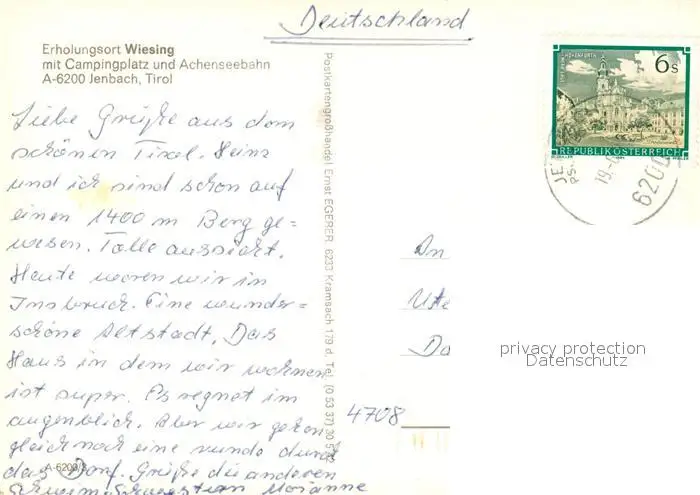 Deutschland
Erholungsort Wiesing
mit Campingplatz und Achenseebahn
A-6200 Jenbach, Tirol
Liebe Grüße aus dem
schönen Tirol. Heinz
und ich sind schon auf
einen 1400 m Berg ge=
wesen. Tolle aussicht.
Heute waren wir in
Insbruck. Eine wunder=
schöne Altstadt. Das
Haus in dem wir wohnen
ist super. Es regnet im
augenblick. Aber wir gehen
gleich noch eine runde durch
das Dorf. Grüße die anderen
Marianne
A-6200/
Postkartengroßhandel Ernst EGERER, 6233 Kramsach 179 d, Tel. (0 53 37) 30
6 s
REPUBLIK ÖSTERREICH
JE
PS
19.
6200
An
Ute
Da
4708
privacy protection
Datenschutz